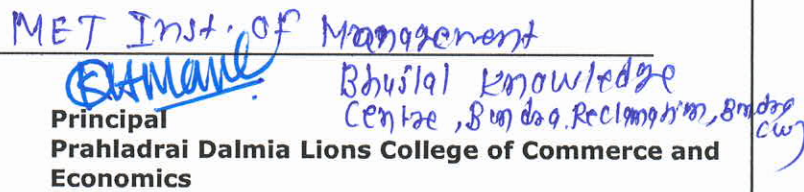 MET Inst. of Management
Bhujlal Knowledge
Centre, Bandra Reclamation, Bandra
Principal
Prahladrai Dalmia Lions College of Commerce and
Economics